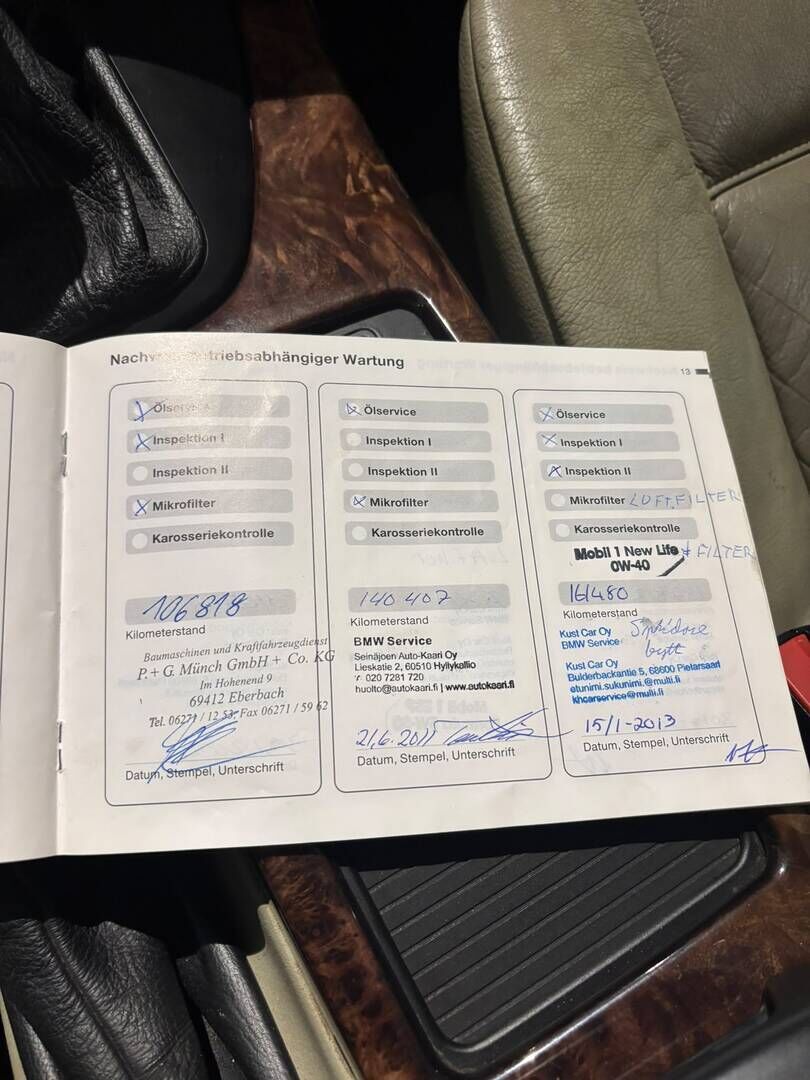 Nachweis betriebsabhängiger Wartung
13
Ölservice
Inspektion I
Inspektion II
Mikrofilter
Karosseriekontrolle
106818
Kilometerstand
Baumaschinen und Kraftfahrzeugdienst
P. + G. Münch GmbH + Co. KG
Im Hohenend 9
69412 Eberbach
Tel. 06271 / 12 53, Fax 06271 / 59 62
Datum, Stempel, Unterschrift
Ölservice
Inspektion I
Inspektion II
Mikrofilter
Karosseriekontrolle
140 407
Kilometerstand
BMW Service
Seinäjoen Auto-Kaari Oy
Lieskatie 2, 60510 Hyllykallio
✆ 020 7281 720
huolto@autokaari.fi | www.autokaari.fi
21.6.2011
Datum, Stempel, Unterschrift
Ölservice
Inspektion I
Inspektion II
Mikrofilter LUFT.FILTER
Karosseriekontrolle
Mobil 1 New Life + FILTER
0W-40
161480
Kilometerstand
Kust Car Oy
BMW Service
bytt
Kust Car Oy
Bulderbackantie 5, 68600 Pietarsaari
etunimi.sukunimi@multi.fi
khcarservice@multi.fi
15/1-2013
Datum, Stempel, Unterschrift